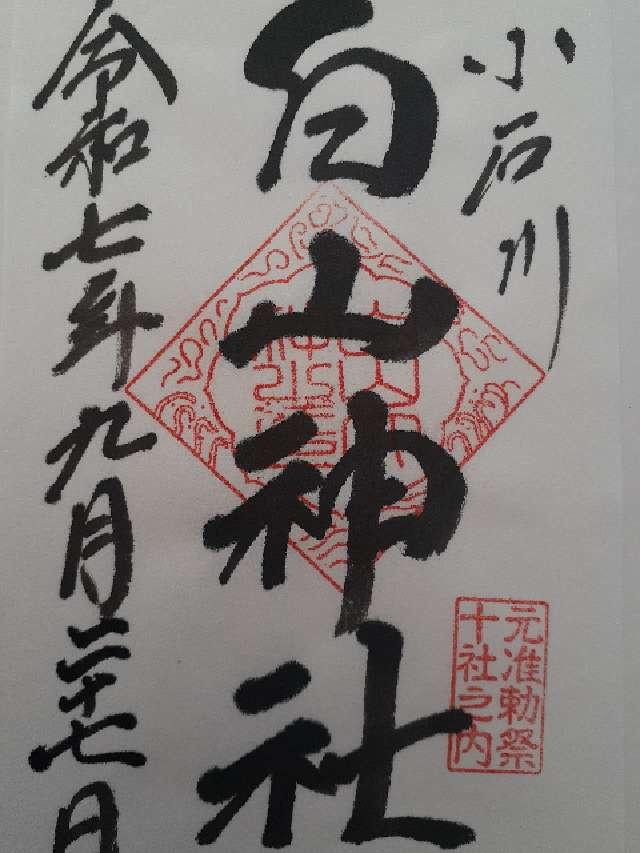 小石川
白山神社
元准勅祭
十社之内
令和七年九月二十七日